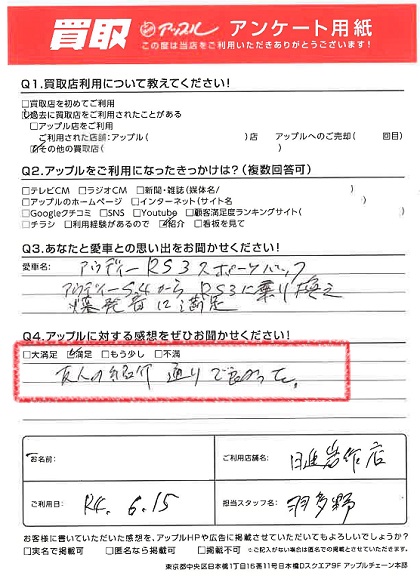 買取 アップル アンケート用紙
この度は当店をご利用いただきありがとうございます!
Q1.買取店利用について教えてください!
□買取店を初めてご利用
☑過去に買取店をご利用されたことがある
□アップル店をご利用
ご利用された店舗:アップル( )店 アップルへのご売却( 回目)
☑その他の買取店( )
Q2.アップルをご利用になったきっかけは?(複数回答可)
□テレビCM □ラジオCM □新聞・雑誌(媒体名/ )
□アップルのホームページ □インターネット(サイト名 )
□Googleクチコミ □SNS □Youtube □顧客満足度ランキングサイト( )
□チラシ □利用経験があるので ☑紹介 □看板を見て
Q3.あなたと愛車との思い出をお聞かせください!
愛車名: アウディーRS3スポーツバック
アウディーS4から RS3に乗り換え
爆発音に満足
Q4.アップルに対する感想をぜひお聞かせください!
□大満足 ☑満足 □もう少し □不満
友人の紹介 通りで良かった。
お名前:
ご利用店舗名: 日進岩作店
ご利用日: R4. 6. 15
担当スタッフ名: 羽多野
お客様に書いていただいた感想を、アップルHPや広告に掲載させていただいてもよろしいでしょうか?
□実名で掲載可 □匿名なら掲載可 □掲載不可 ※ご記入がない場合は匿名での掲載とさせていただきます。
東京都中央区日本橋1丁目16番11号日本橋Dスクエア9F アップルチェーン本部